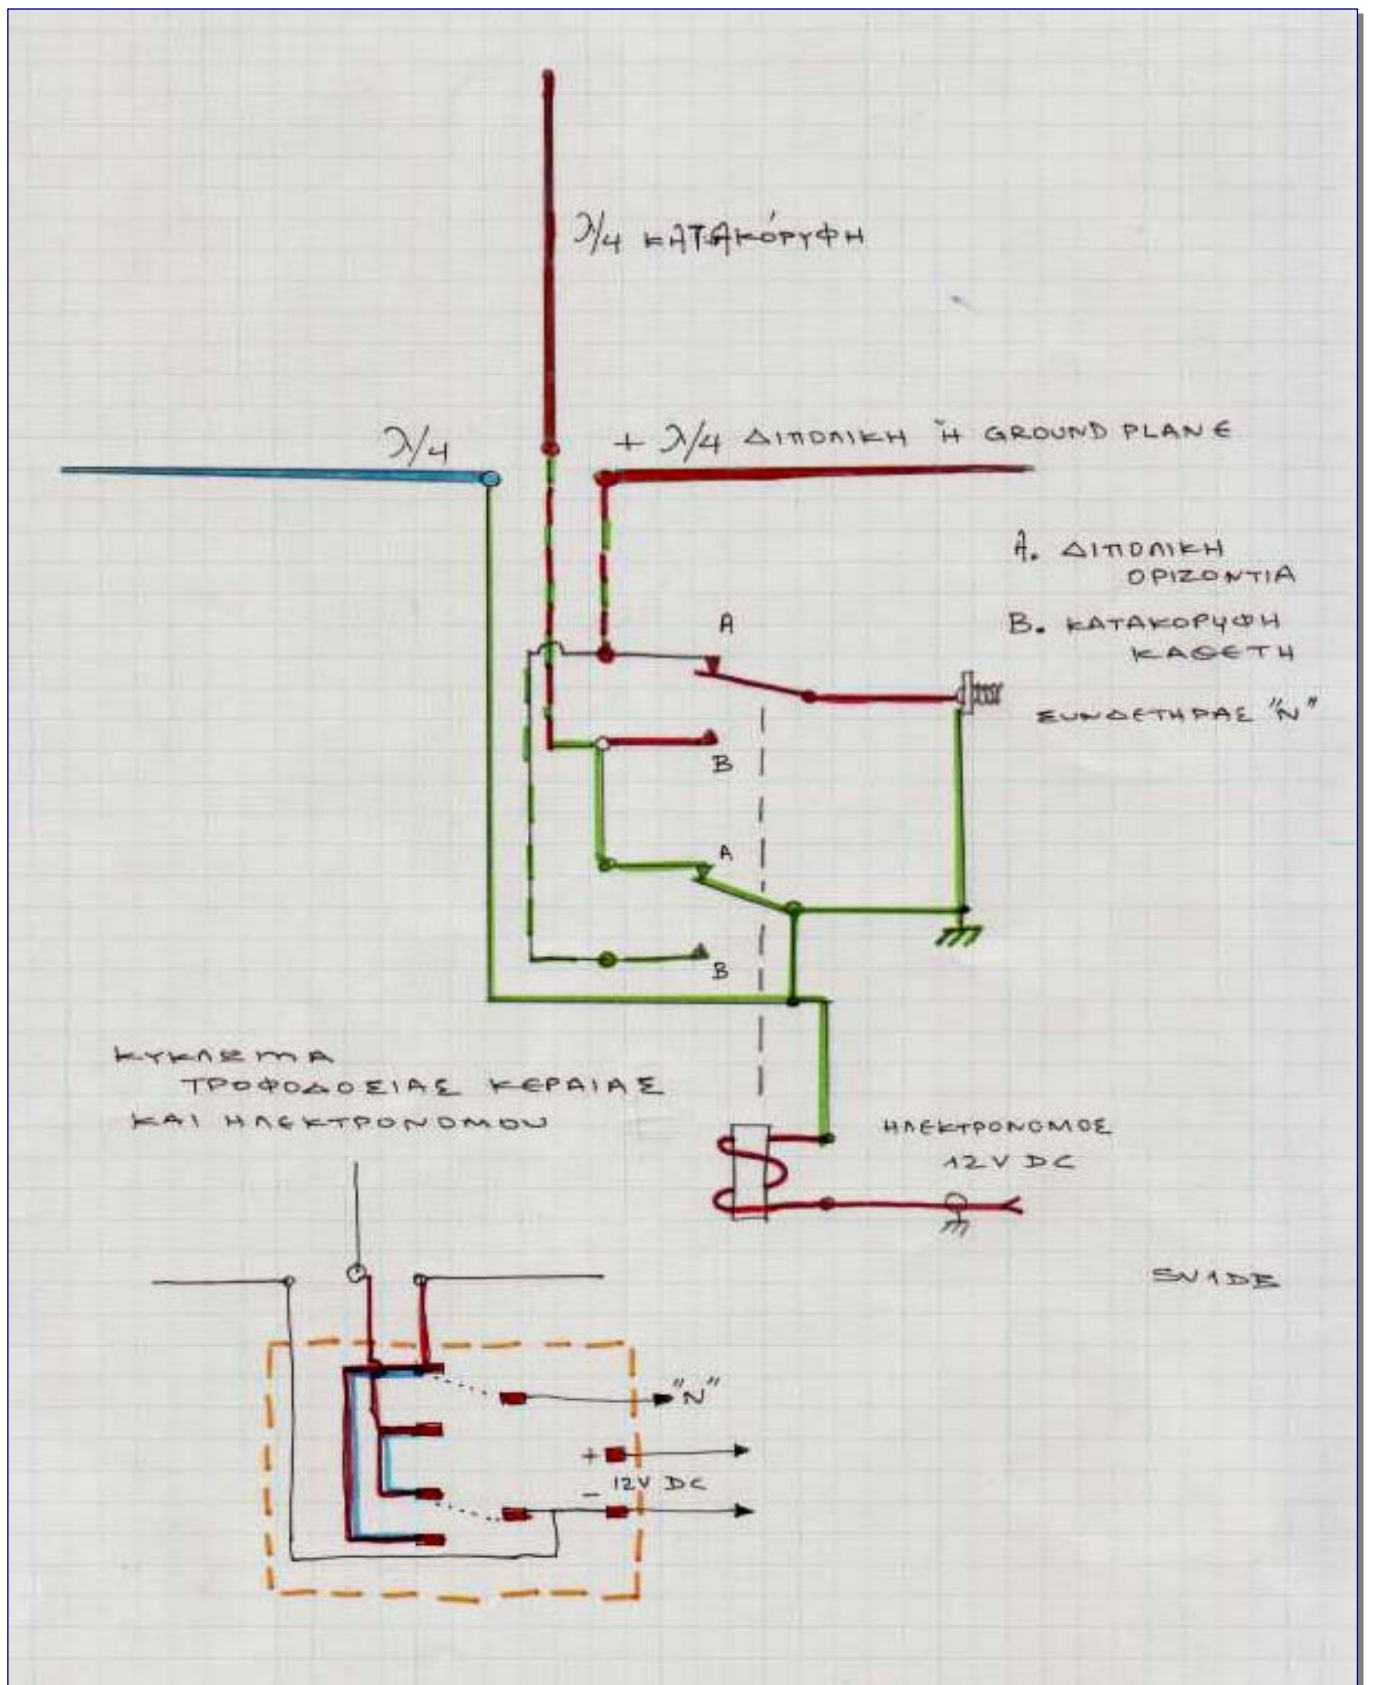 λ/4 ΚΑΤΑΚΌΡΥΦΗ
λ/4
+ λ/4 ΔΙΠΟΛΙΚΗ Ή GROUND PLANE
A. ΔΙΠΟΛΙΚΗ
ΟΡΙΖΟΝΤΙΑ
B. ΚΑΤΑΚΟΡΥΦΗ
ΚΑΘΕΤΗ
A
ΣΥΝΔΕΤΗΡΑΣ "N"
B
A
B
ΚΥΚΛΩΜΑ
ΤΡΟΦΟΔΟΣΙΑΣ ΚΕΡΑΙΑΣ
ΚΑΙ ΗΛΕΚΤΡΟΝΟΜΟΥ
ΗΛΕΚΤΡΟΝΟΜΟΣ
12V DC
SV1DB
"N"
+
12V DC
-